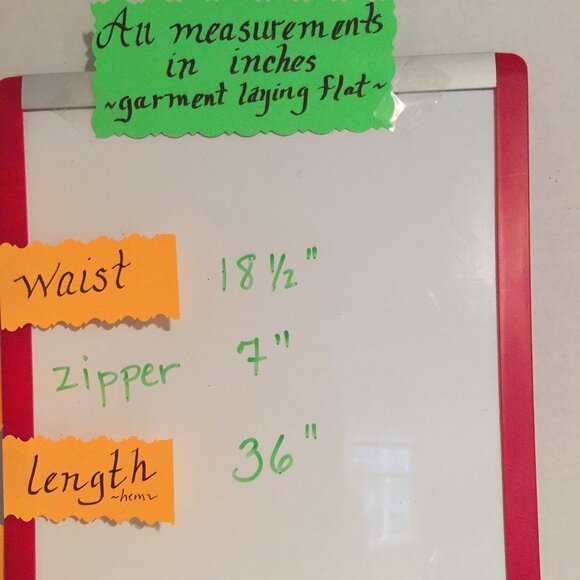 All measurements
in inches
~garment laying flat~
waist 18 1/2"
zipper 7"
length 36"
~hem~